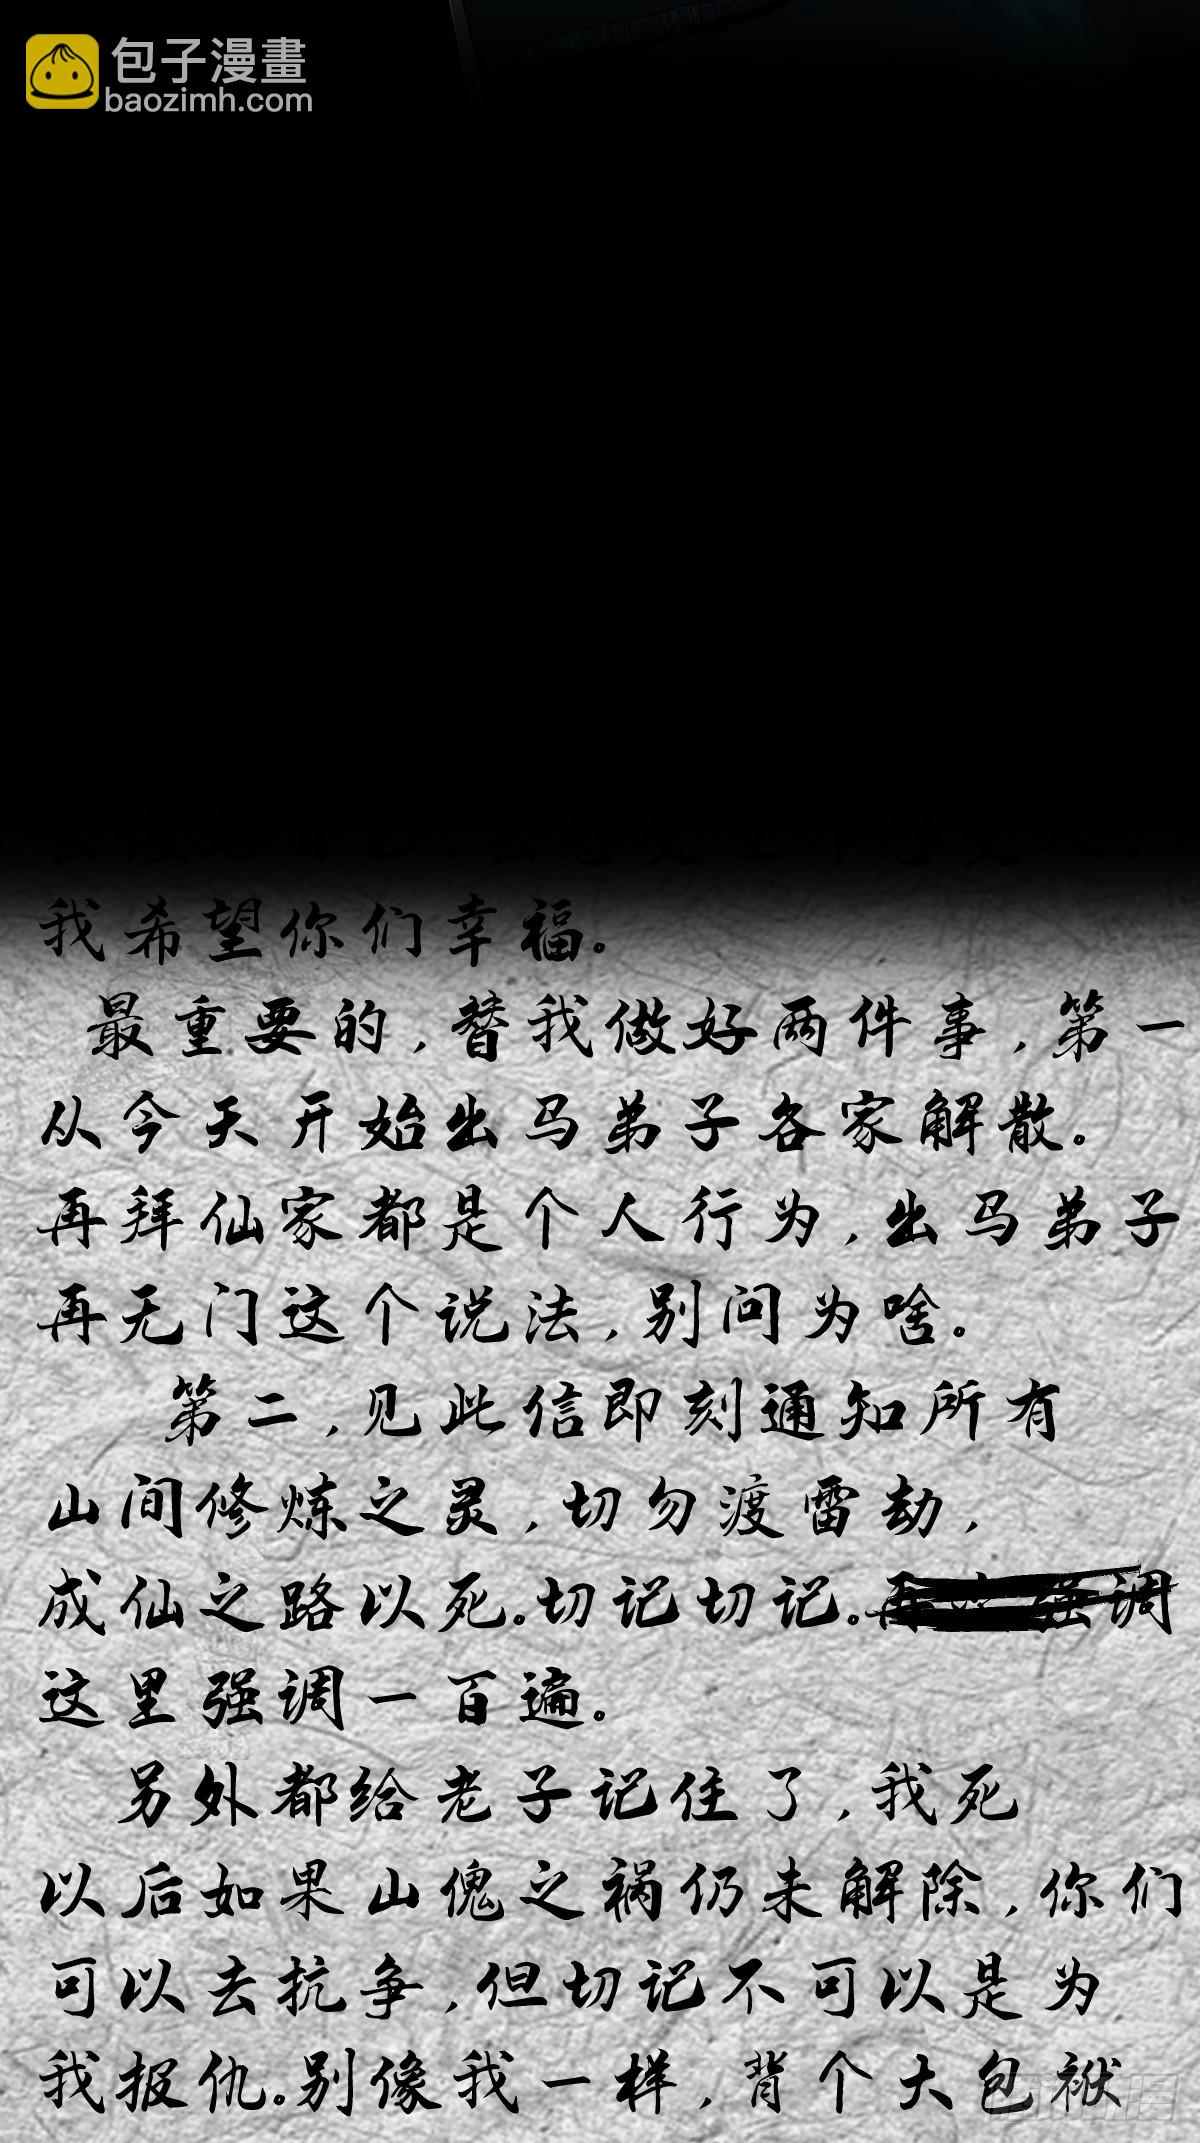 包子漫畫
baozimh.com
去做好自己，去感受世界感受人，
我希望你们幸福。
最重要的，替我做好两件事，第一
从今天开始出马弟子各家解散。
再拜仙家都是个人行为，出马弟子
再无门这个说法，别问为啥。
第二，见此信即刻通知所有
山间修炼之灵，切勿渡雷劫，
成仙之路以死。切记切记。强调
这里强调一百遍。
另外都给老子记住了，我死
以后如果山傀之祸仍未解除，你们
可以去抗争，但切记不可以是为
我报仇。别像我一样，背个大包袱